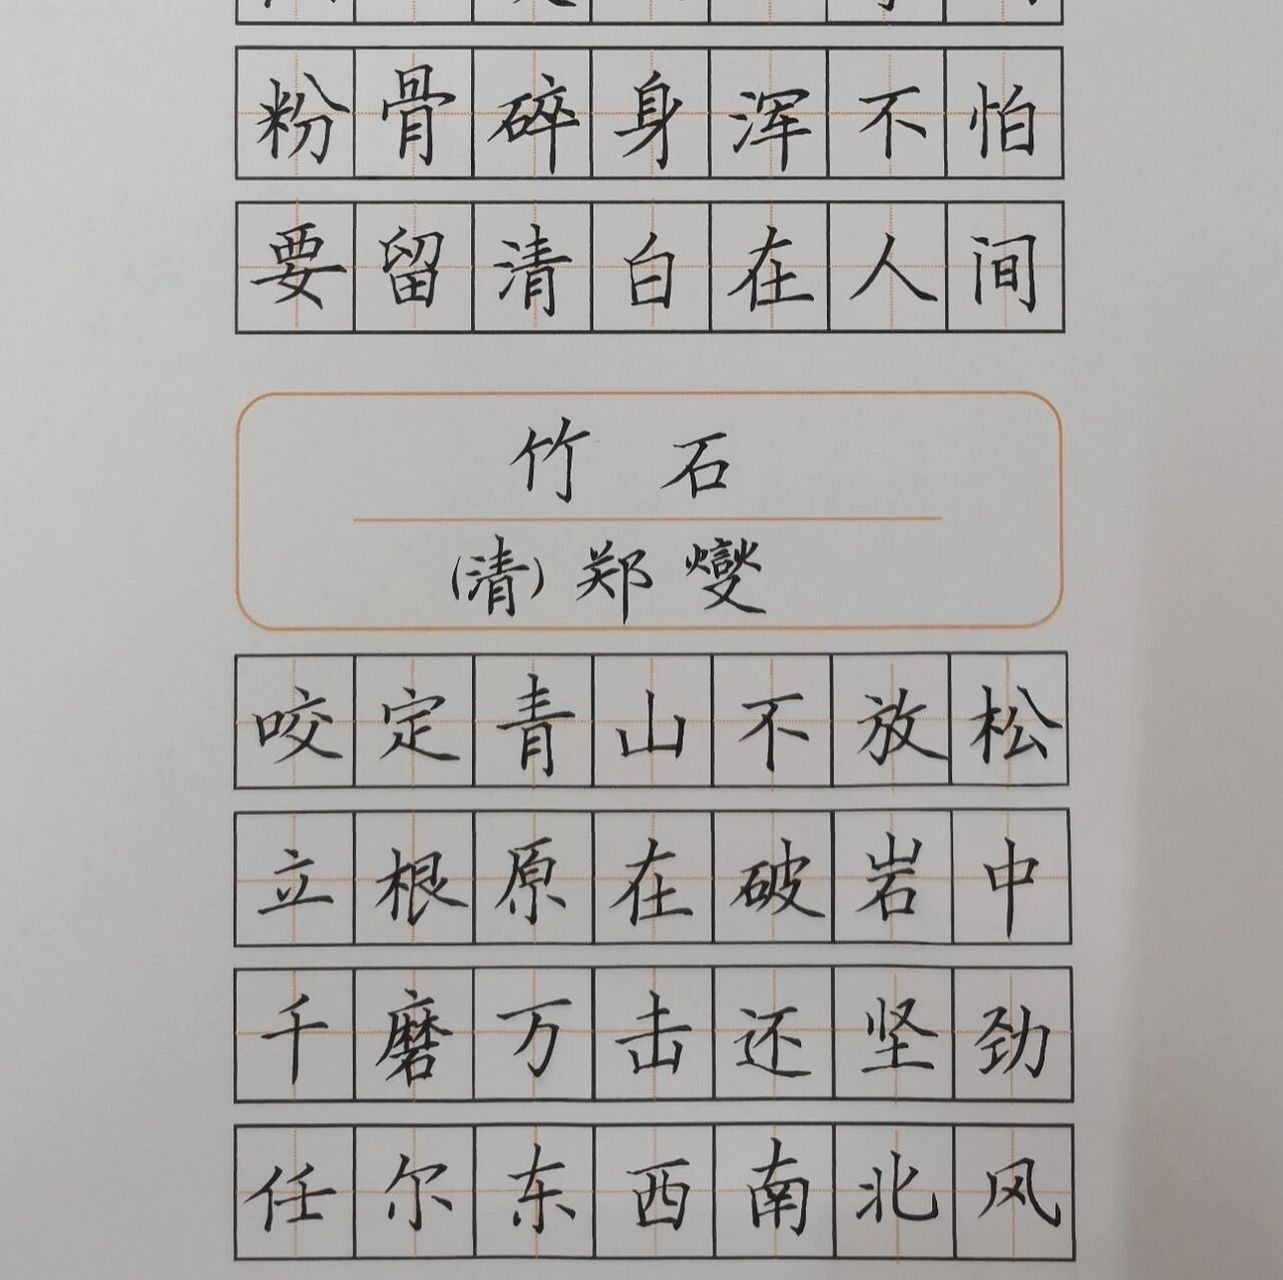 粉骨碎身浑不怕
要留清白在人间
竹石
(清)郑燮
咬定青山不放松
立根原在破岩中
千磨万击还坚劲
任尔东西南北风